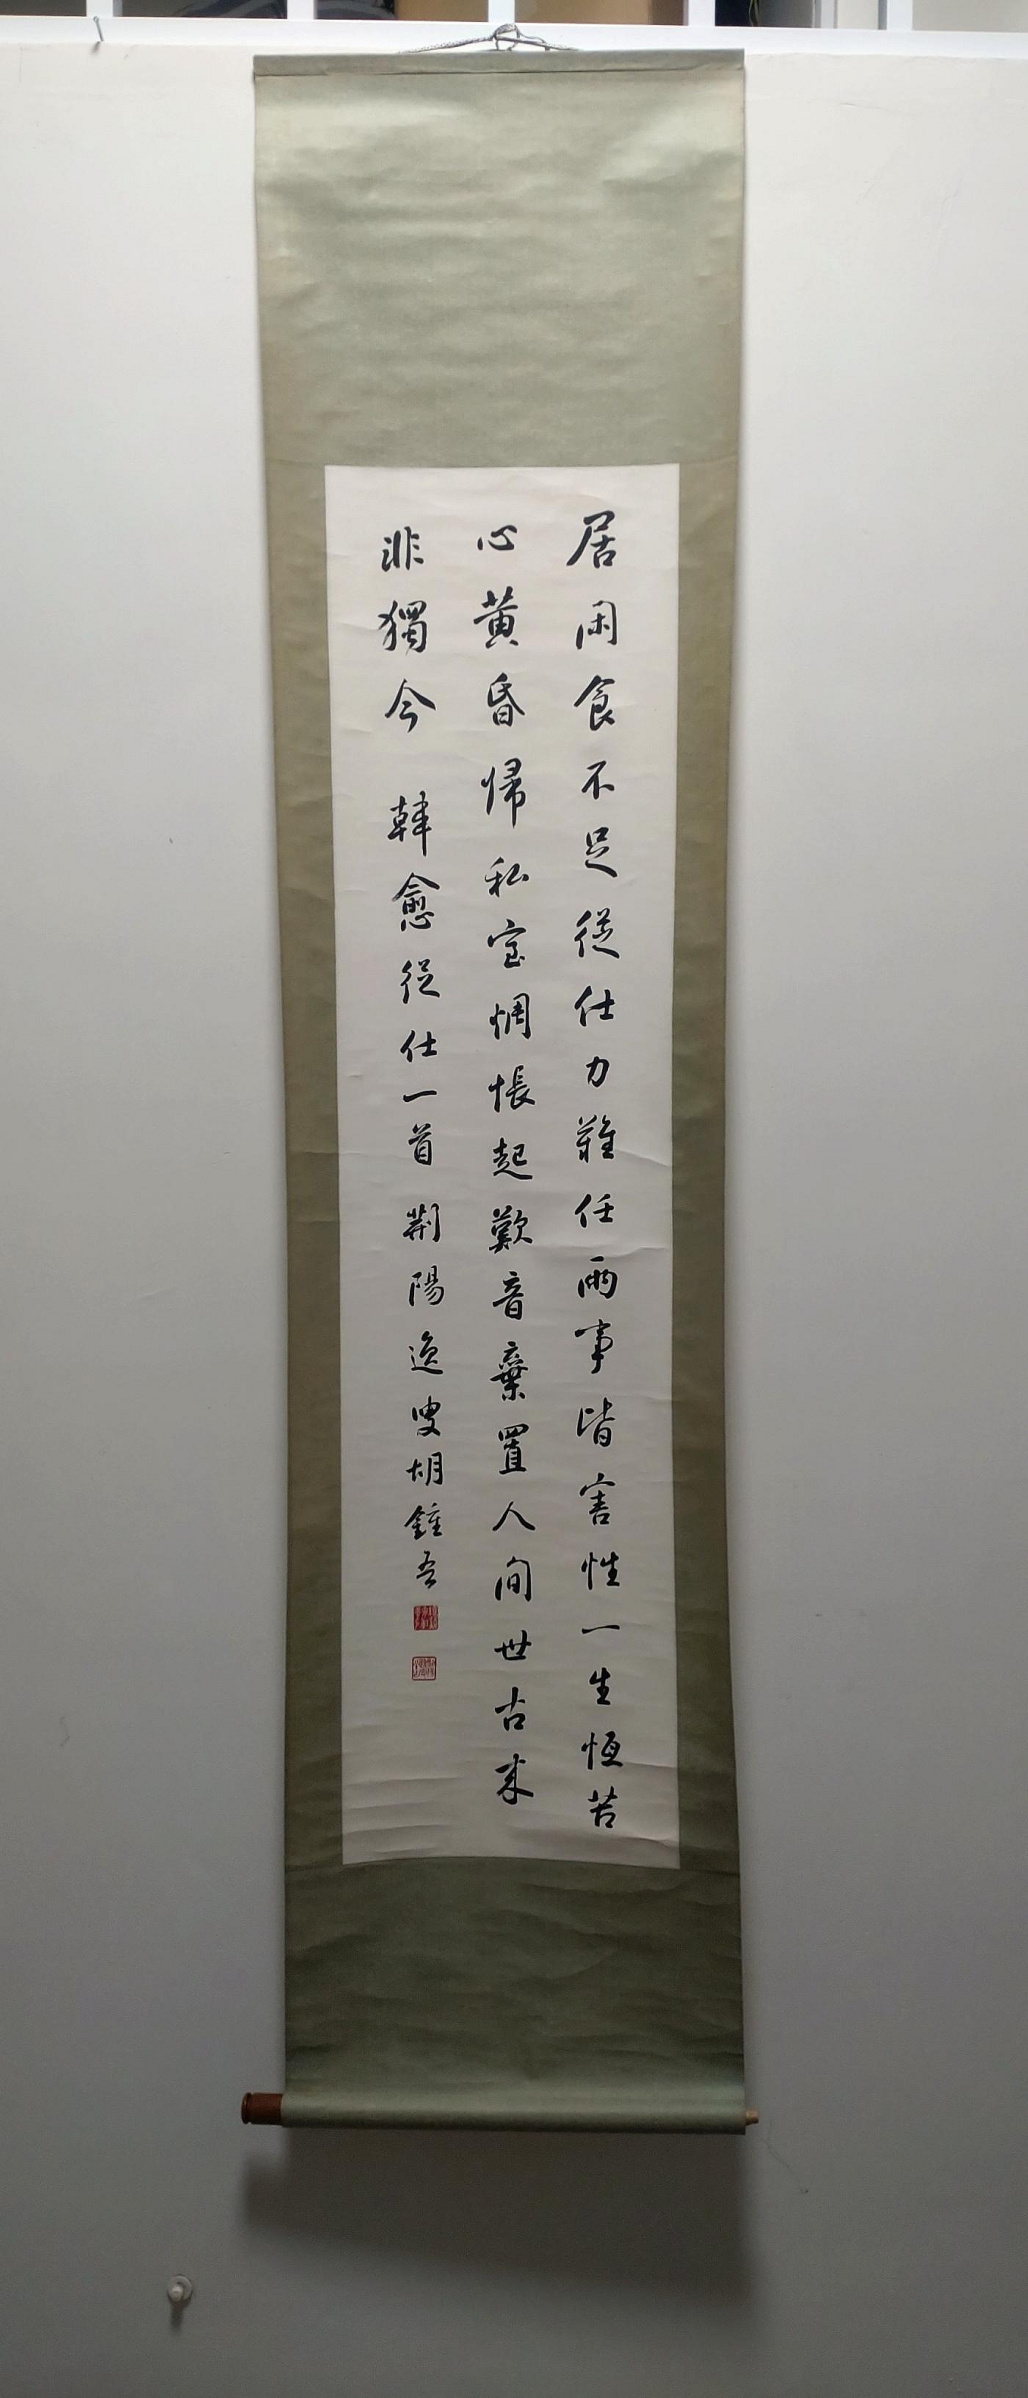 居閑食不足從仕力難任兩事皆害性一生恒苦
心黄昏歸私室惆悵起歎音棄置人間世古来
非獨今 韓愈從仕一首 荆陽逸叟胡鍾吾